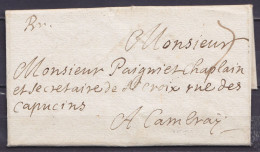 Monsieur
Monsieur Paigniet Chaplain
et Secretaire de St croix rue des
capucins
A Cambray